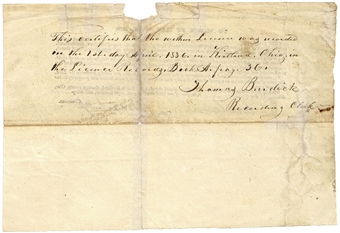 This certifies that the within License was recorded
on the 1st day April 1836. in Kirtland, Ohio, in
the License Records Book A. page 36.
Thomas Burdick
Recording Clerk